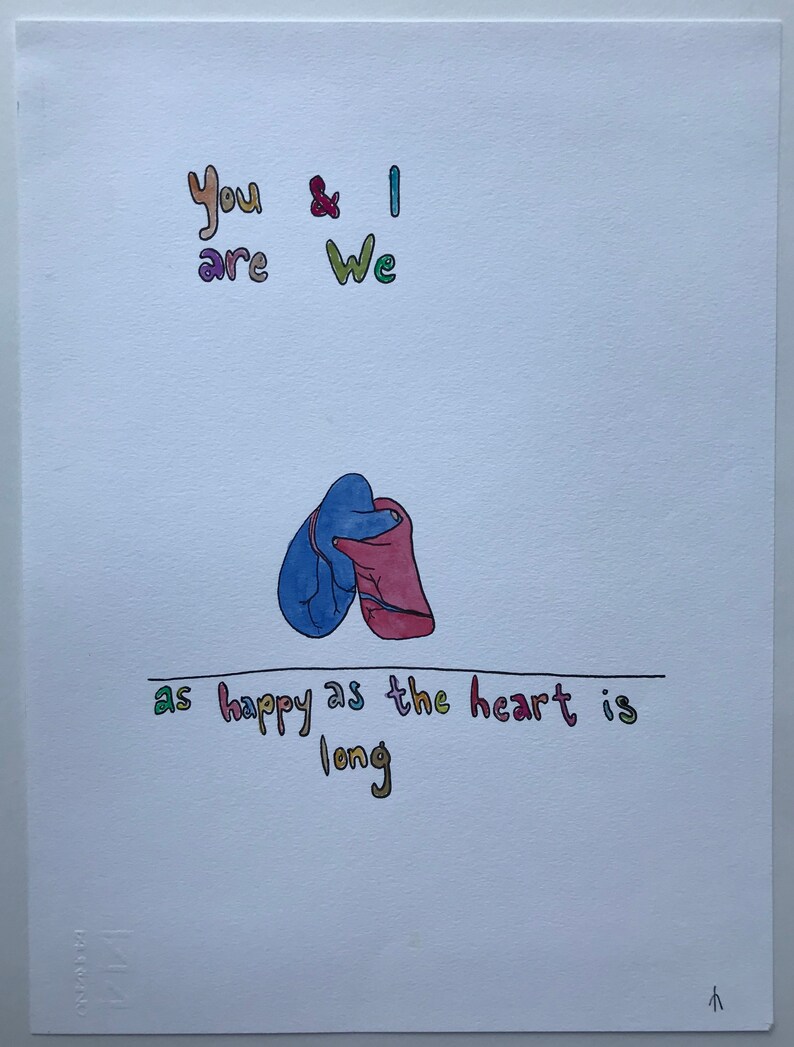 You & I
are We
as happy as the heart is
long